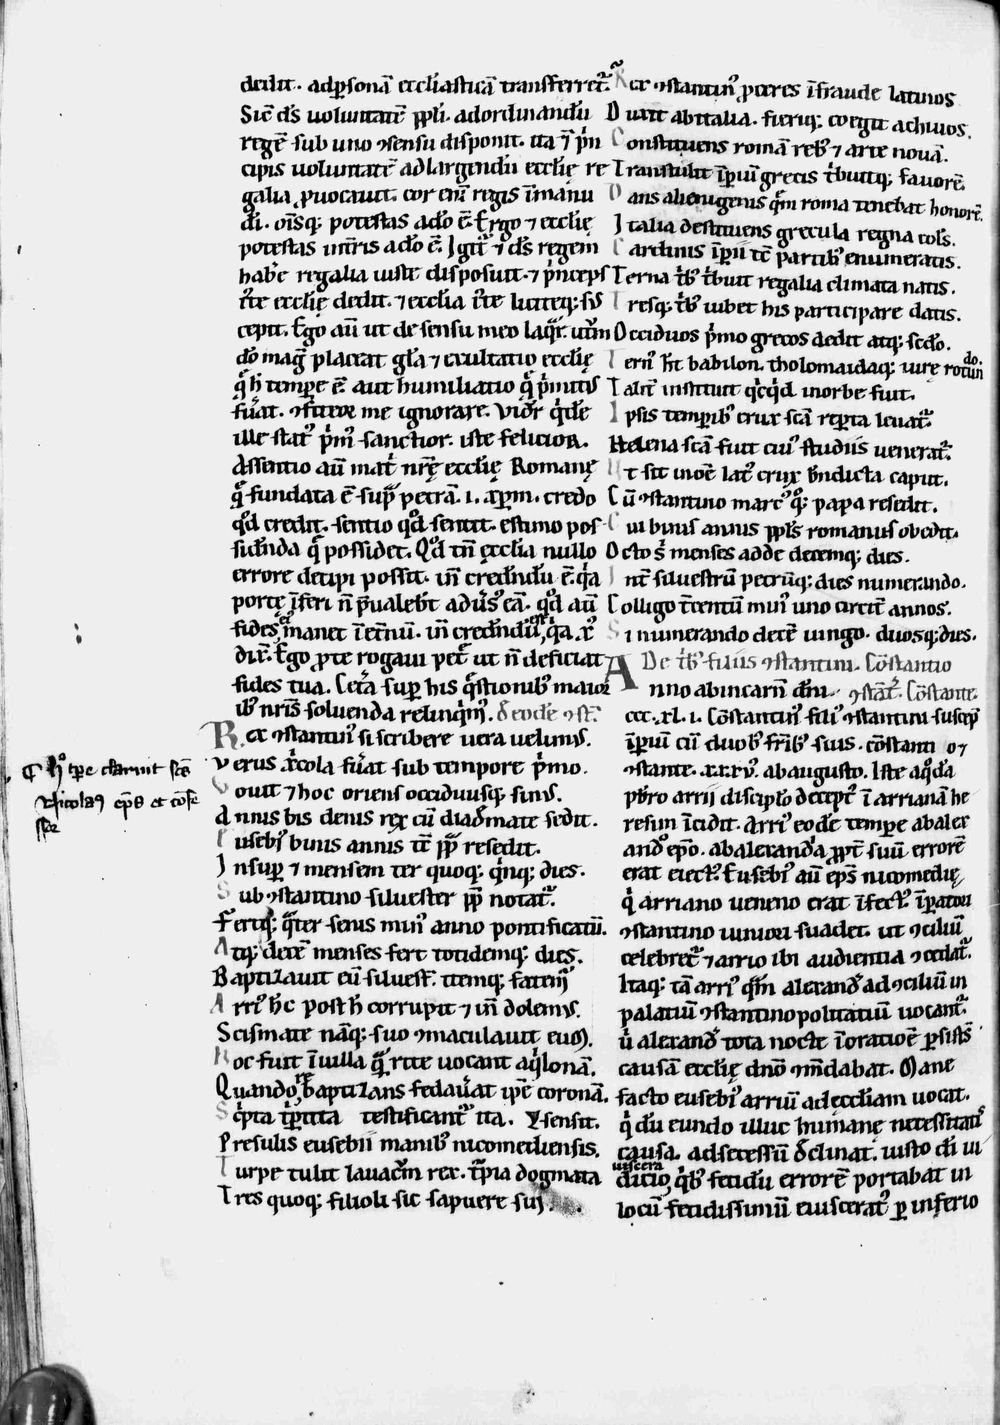 dedit. ad p̱sonā eccl̄iasticā transferret᷑.
Sic̄ dn̄s uoluntatē pp̄li. ad ordinandū
regē sub uno ꝯsensu disponit. ita ⁊ p̄n
cipis uoluntatē ad largendū eccl̄ię re
galia ꝓuocauit. cor eni regis ī manu
dī. oīsq; potestas a do ē. Ergo ⁊ eccl̄ię
potestas int̄ris a do ē. Igit᷑ ⁊ dn̄s regem
habe regalia iuste disposuit. ⁊ p̄nceps
eccl̄ię dedit. ⁊ eccl̄ia
cepit. Ego aū ut de sensu meo laq᷑r. utrū
do maḡ placeat gl̄a ⁊ exultatio eccl̄ię
q̄ h tempore ē. aut humiliatio q̄ p̄mitis
fuat. me ignorare. Videt᷑ qde
ille stat᷒ p̄m᷒ sanctior. iste felicior.
Assentio aū mat̄ nrę̄ eccl̄ię Romanę
q̄ fundata ē sup̱ petrā .i. xp̄m. credo
qd credit. sentio qd sentit. estimo pos
sidenda q̄ possidet. Qd tn̄ eccl̄ia nullo
errore decipi possit. in̄ credendū ē. qa
portę īferi n̄ p̄ualebt̄ adu̓s᷒ eā. qd aū
fides ei᷒ manet ī et̄nū. in̄ credendū ē, qa xr᷒
dix̄. Ego ꝓ te rogaui petr̄ ut n̄ deficiat
fides tua. Cet̄a sup̱ his q̄stionib᷒ maior
ib᷒ nr̄is soluenda relinqm᷒. De eodē ꝯst̄.
Rex ꝯstantin᷒ si scribere uera uelim᷒.
Verus xp̄icola fuat sub tempore p̄mo.
Vouit ⁊ hoc oriens occiduusq; sim᷒.
Annis bis denis rex cū diademate sedit.
Eusebi᷒ binis annis tc̄ pp̄ resedit.
Insup̱ ⁊ mensem ter quoq; qnq; dies.
Sub ꝯstantino siluester pp̄ notat᷑.
Fertq; q̄ter senis min᷒ anno pontificatū.
Atq; decē menses fert totidemq; dies.
Baptizauit eū siluest̄. itemq; fatem᷑
Arri᷒ hc̄ post h corrupit ⁊ in̄ dolem᷒.
Scismate nāq; suo ꝯmaculauit eum.
Hoc fuit ī uilla q̄ rite uocant aqlonā.
Quando rebaptizans fedau̓at ip̄e coronā.
Sc̱pta tp̱tita testificant᷑ ita. ⁊ sensit.
Presulis eusebii manib᷒ nicomediensis.
Turpe tulit lauacrm̄ rex. tp̱ia dogmata
Tres quoq; filioli sic sapuere sui.
¶ Hº tp̱e claruit sc̄s
Nicola᷒ ep̄s et cōfe
ssor
Rex ꝯstantin᷒ ꝓceres ī fraude latinos
Duxit ab italia. fieriq; coegit achiuos.
Constituens romā reb᷒ ⁊ arte nouā.
Transtulit īp̱iū grecis t̓buitq; fauorē.
Dans alienigenis qm̄ roma tenebat honorē.
Italia destituens grecula regna col̄s.
Cardinis īp̱ii tc̄ partib᷒ enumeratis.
Terna t̓b᷒ t̓buit regalia climata natis.
Tresq; t̓b᷒ iubet his participare datis.
Occiduos p̄mo grecos dedit atq; scdo.
Tern᷒ ht̄ babilon. tholomaidaq; iure rotundo.
Talit̄ instituit qcqd in orbe fuit.
Ipsis temporib᷒ crux scā rep̱ta leuat᷑.
Helena scā fuit cui᷒ studiis uenerat᷑.
Ut sit in oē lat᷒ crux bn̄dicta caput.
Cū ꝯstantino marc᷒ q; papa resedit.
Cui binis annis pp̄ls romanus obedit.
Octo s; menses adde decemq; dies.
Int̄ siluestrū petrūq; dies numerando.
Colligo t̄centū min᷒ uno circit̄ annos.
Si numerando decē iungo. duosq; dies.
De t̓b᷒ filiis ꝯstantini. Cōstantio
Anno ab incarn̄ dn̄i. ꝯstāt̄. Cōstante.
ccc. xl. i. Cōstantin᷒ fili᷒ ꝯstantini suscep̱
īp̱iū cū duob᷒ fr̄ib᷒ suis. cōstanti o ⁊
ꝯstante. x.x.xv᷒. ab augusto. Iste a qda
pb̄ro arrii discipl̄o decept᷒ ī arrianā he
resim īcidit. Arri᷒ eodē tempore ab alex
and᷒ ep̄o. ab alexand̓a ꝓpt̄ suū errorē
erat eiect᷒. Eusebi᷒ aū ep̄s nicomedię
q̓ arriano ueneno erat īfect᷒. īp̱atori
ꝯstantino iuniori suadet. ut ꝯciliū
celebret᷑ ⁊ arrio ibi audientia ꝯcedat᷑.
Itaq; tā arri᷒ qm̄ alexand᷒ ad ꝯciliū in
palatiū ꝯstantinopolitatiū uocant᷑.
u̓ alexand᷒ tota nocte ī oratioē p̱sist̄s
causā eccl̄ię dn̄o ꝯm̄dabat. Mane
facto eusebi᷒ arriū ad eccl̄iam uocat.
q̓ dū eundo illuc humanę necessitatis
causa. ad secessū declinat. iusto dī iu
dicio, uiscera qb᷒ fetidū errorē portabat in
locū fetidissimū euiscerat᷒ p̱ inferio